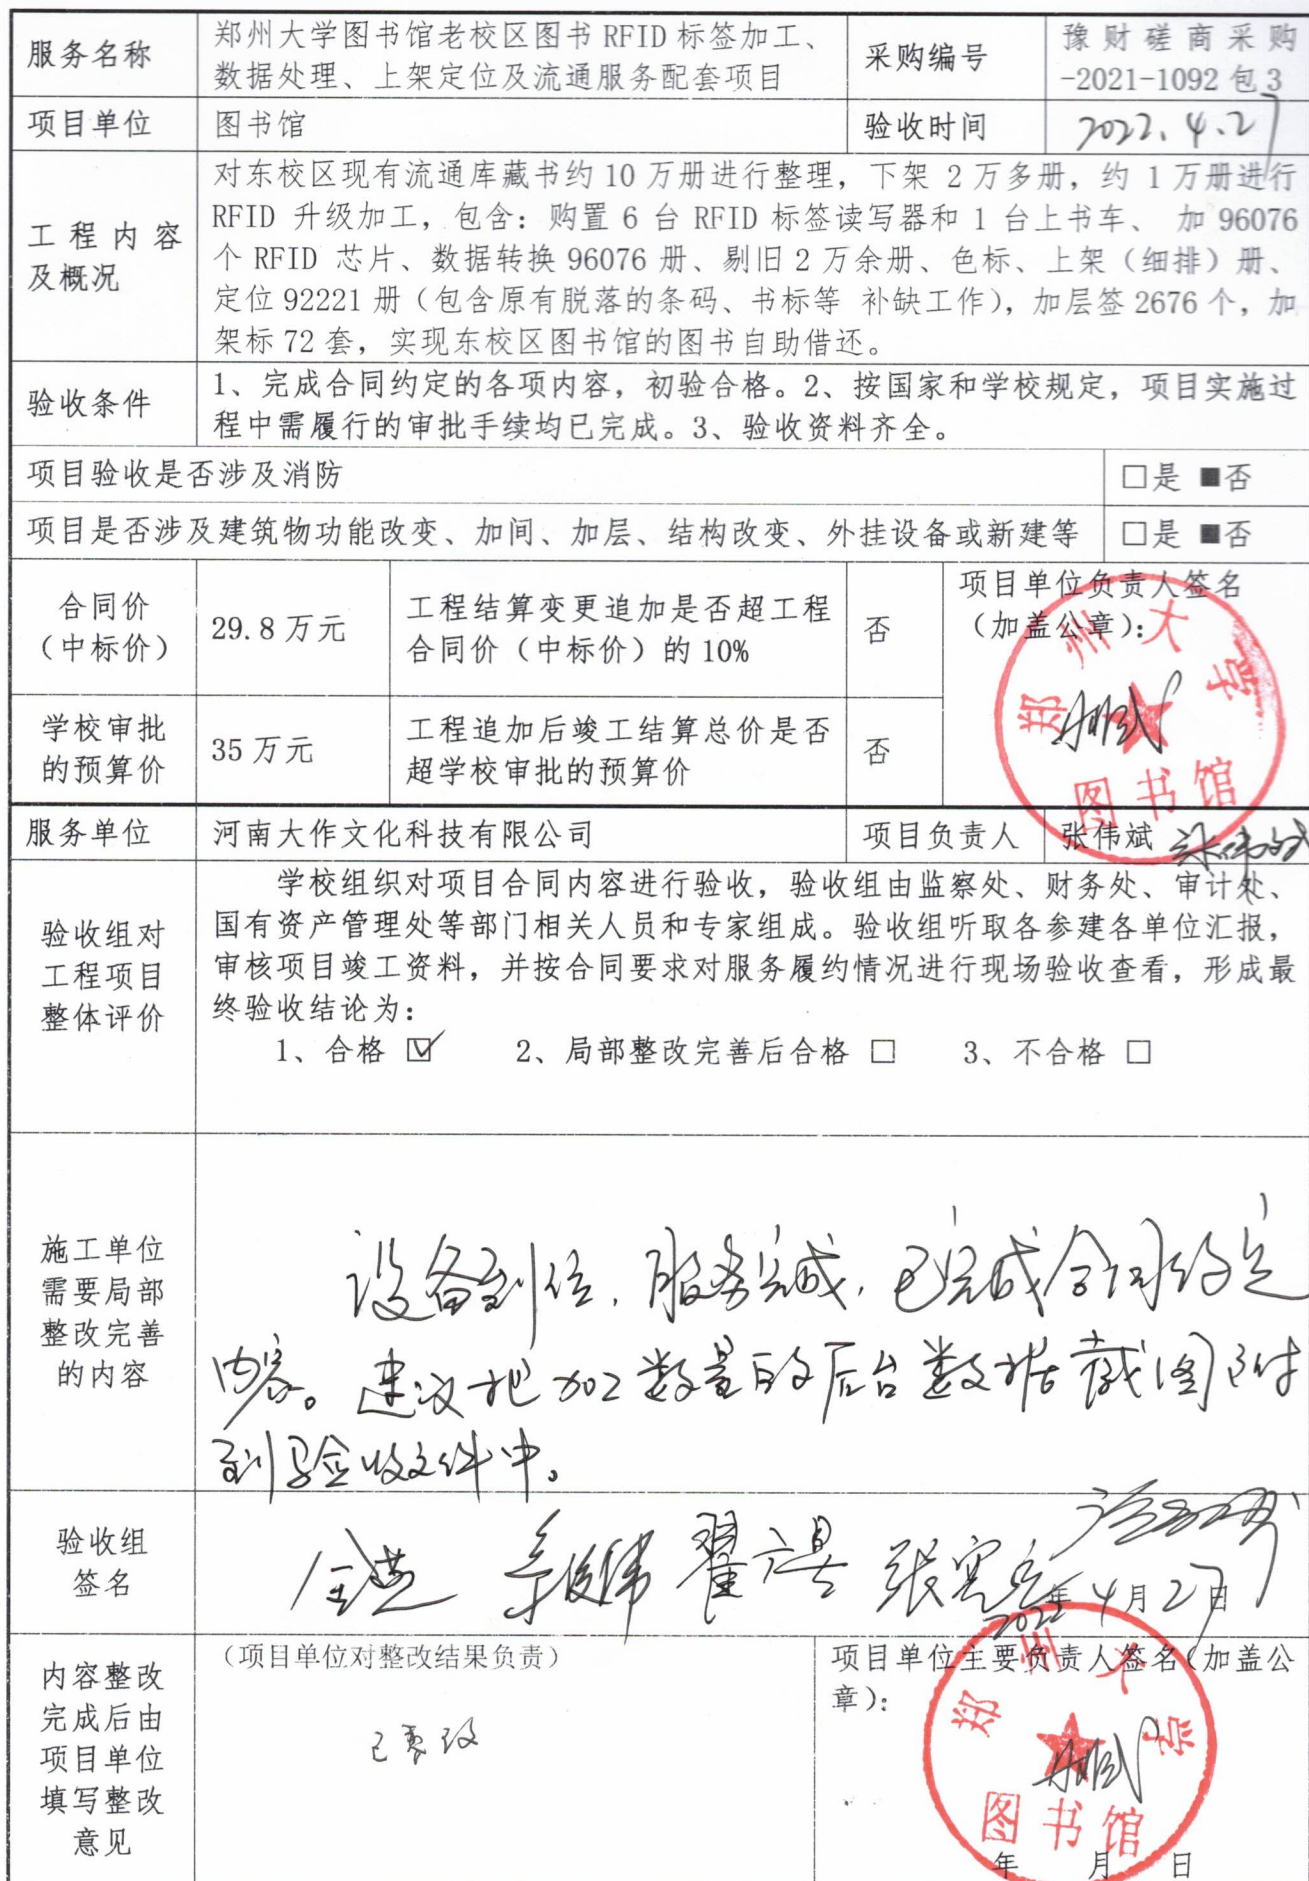 服务名称
郑州大学图书馆老校区图书 RFID 标签加工、
数据处理、上架定位及流通服务配套项目
采购编号
豫财磋商采购
-2021-1092 包 3
项目单位
图书馆
验收时间
2022.4.27
工程内容
及概况
对东校区现有流通库藏书约 10 万册进行整理，下架 2 万多册，约 1 万册进行
RFID 升级加工，包含：购置 6 台 RFID 标签读写器和 1 台上书车、 加 96076
个 RFID 芯片、数据转换 96076 册、剔旧 2 万余册、色标、上架（细排）册、
定位 92221 册（包含原有脱落的条码、书标等 补缺工作），加层签 2676 个，加
架标 72 套，实现东校区图书馆的图书自助借还。
验收条件
1、完成合同约定的各项内容，初验合格。2、按国家和学校规定，项目实施过
程中需履行的审批手续均已完成。3、验收资料齐全。
项目验收是否涉及消防
□是 ■否
项目是否涉及建筑物功能改变、加间、加层、结构改变、外挂设备或新建等
□是 ■否
合同价
（中标价）
29.8 万元
工程结算变更追加是否超工程
合同价（中标价）的 10%
否
项目单位负责人签名
（加盖公章）：
郑州大学
图书馆
学校审批
的预算价
35 万元
工程追加后竣工结算总价是否
超学校审批的预算价
否
服务单位
河南大作文化科技有限公司
项目负责人
张伟斌 张伟斌
验收组对
工程项目
整体评价
学校组织对项目合同内容进行验收，验收组由监察处、财务处、审计处、
国有资产管理处等部门相关人员和专家组成。验收组听取各参建各单位汇报，
审核项目竣工资料，并按合同要求对服务履约情况进行现场验收查看，形成最
终验收结论为：
1、合格 ☑ 2、局部整改完善后合格 □ 3、不合格 □
施工单位
需要局部
整改完善
的内容
设备到位，服务完成，已完成合同约定
内容。建议把加工数量的后台数据截图附
到验收文件中。
验收组
签名
2022年4月27日
内容整改
完成后由
项目单位
填写整改
意见
（项目单位对整改结果负责）
已整改
项目单位主要负责人签名（加盖公
章）：
郑州大学
图书馆
年 月 日